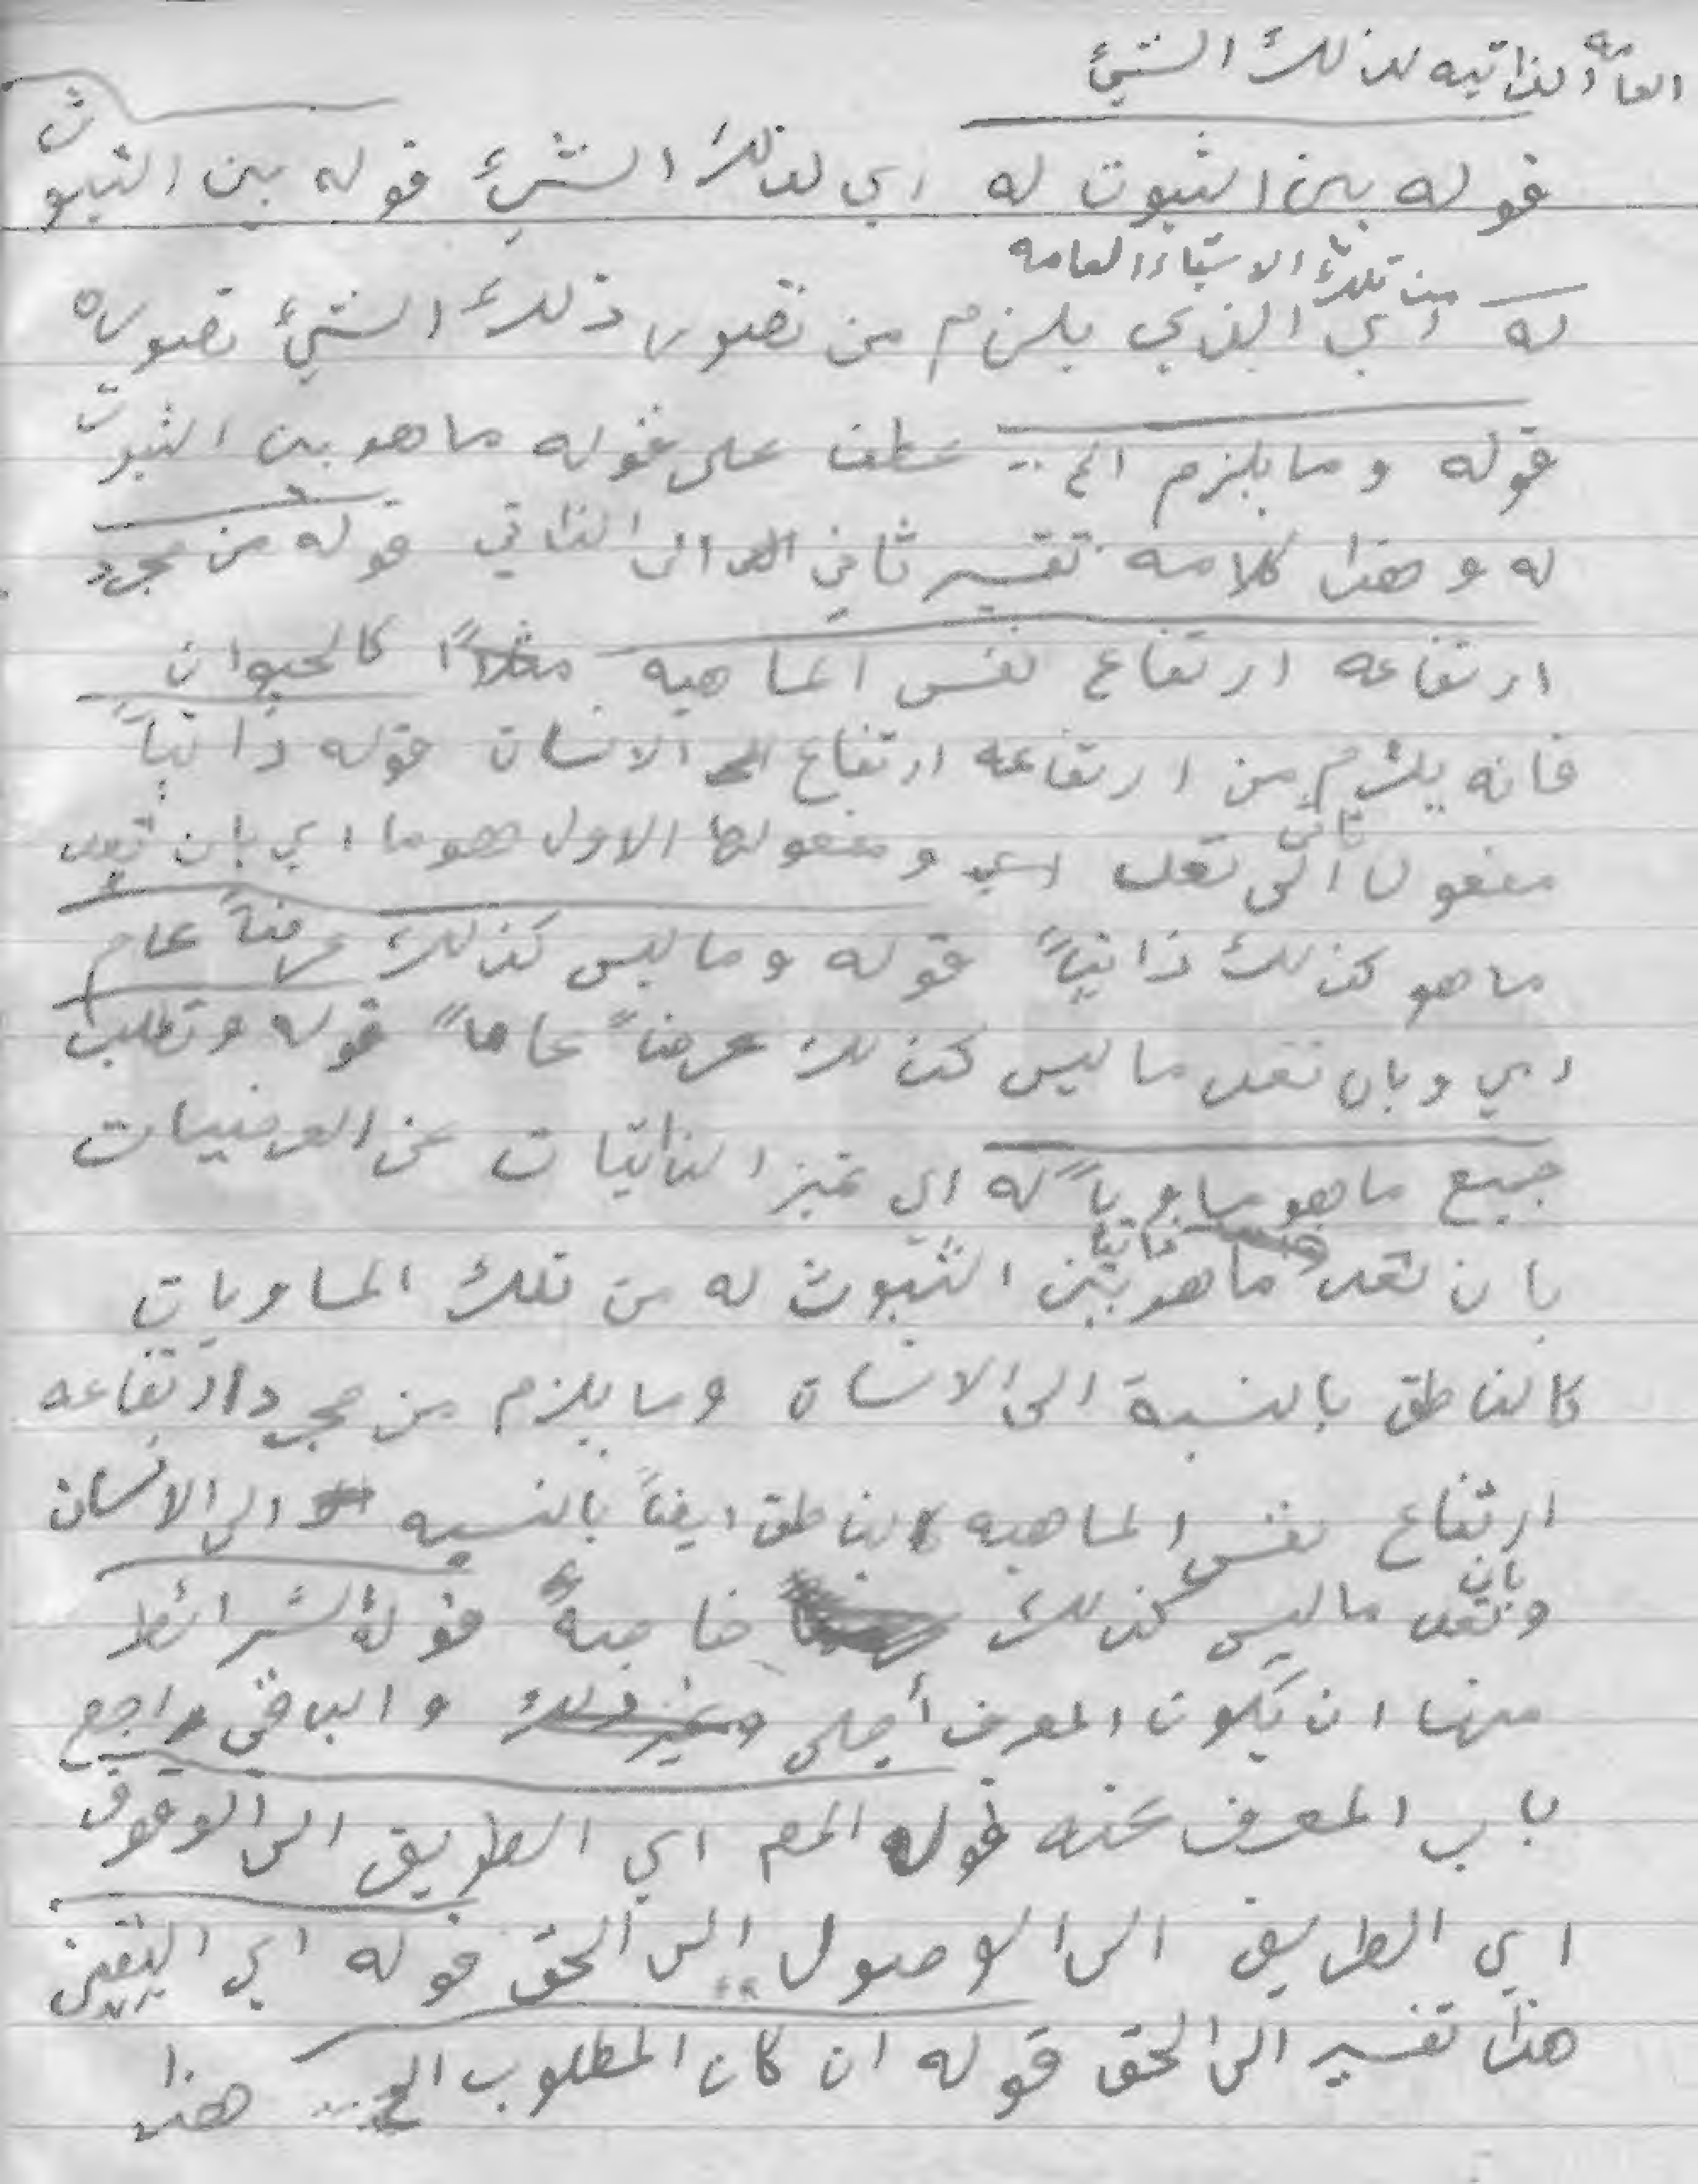 العامه الذاتيه لذلك الشيئ
قوله بين الثبوت له اي لذلك الشيئ قوله بين الثبوت
من تلك الاشياء العامه
له اي الذي يلزم من تصور ذلك الشيئ تصوره
قوله وما يلزم الخ .. عطف على قوله ما هو بين الثبوت
له و هذا كلامه تفسير ثاني الى الذاتي قوله من مجرد
ارتفاعه ارتفاع نفس الماهيه مثلاً كالحيوان
فانه يلزم من ارتفاعه ارتفاع الانسان قوله ذاتياً
مفعول ثاني الى تعد و مفعولها الاول هو ما اي بان تعد
ما هو كذلك ذاتياً قوله وما ليس كذلك عرضاً عام
اي وبان تعد ما ليس كذلك عرضاً عاماً قوله وتطلب
جميع ما هو مساوياً له اي تميز الذاتيات عن العرضيات
بان تعد ما هو بين الثبوت له من تلك المساويات ذاتياً
كالناطق بالنسبة الى الانسان وما يلزم من مجرد ارتفاعه
ارتفاع نفس الماهيه كالناطق ايضاً بالنسبه الى الانسان
وبان تعد ما ليس كذلك خاصةً قوله الشرائط
منها ان يكون المعرف أجلى والباقي راجع
باب المعرف عنه قوله الم اي الطريق الى الوقوف
اي الطريق الى الوصول الى الحق قوله اي اليقين
هذا تفسير الى الحق قوله ان كان المطلوب الخ ... هذا